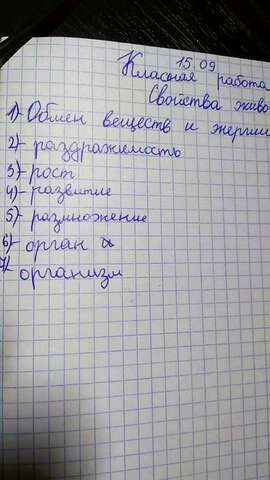 15.09
Классная работа
Свойства живо
1)- Обмен веществ и энергии
2)- раздражимость
3)- рост
4)- развитие
5)- размножение
6)- орган
7)- организм